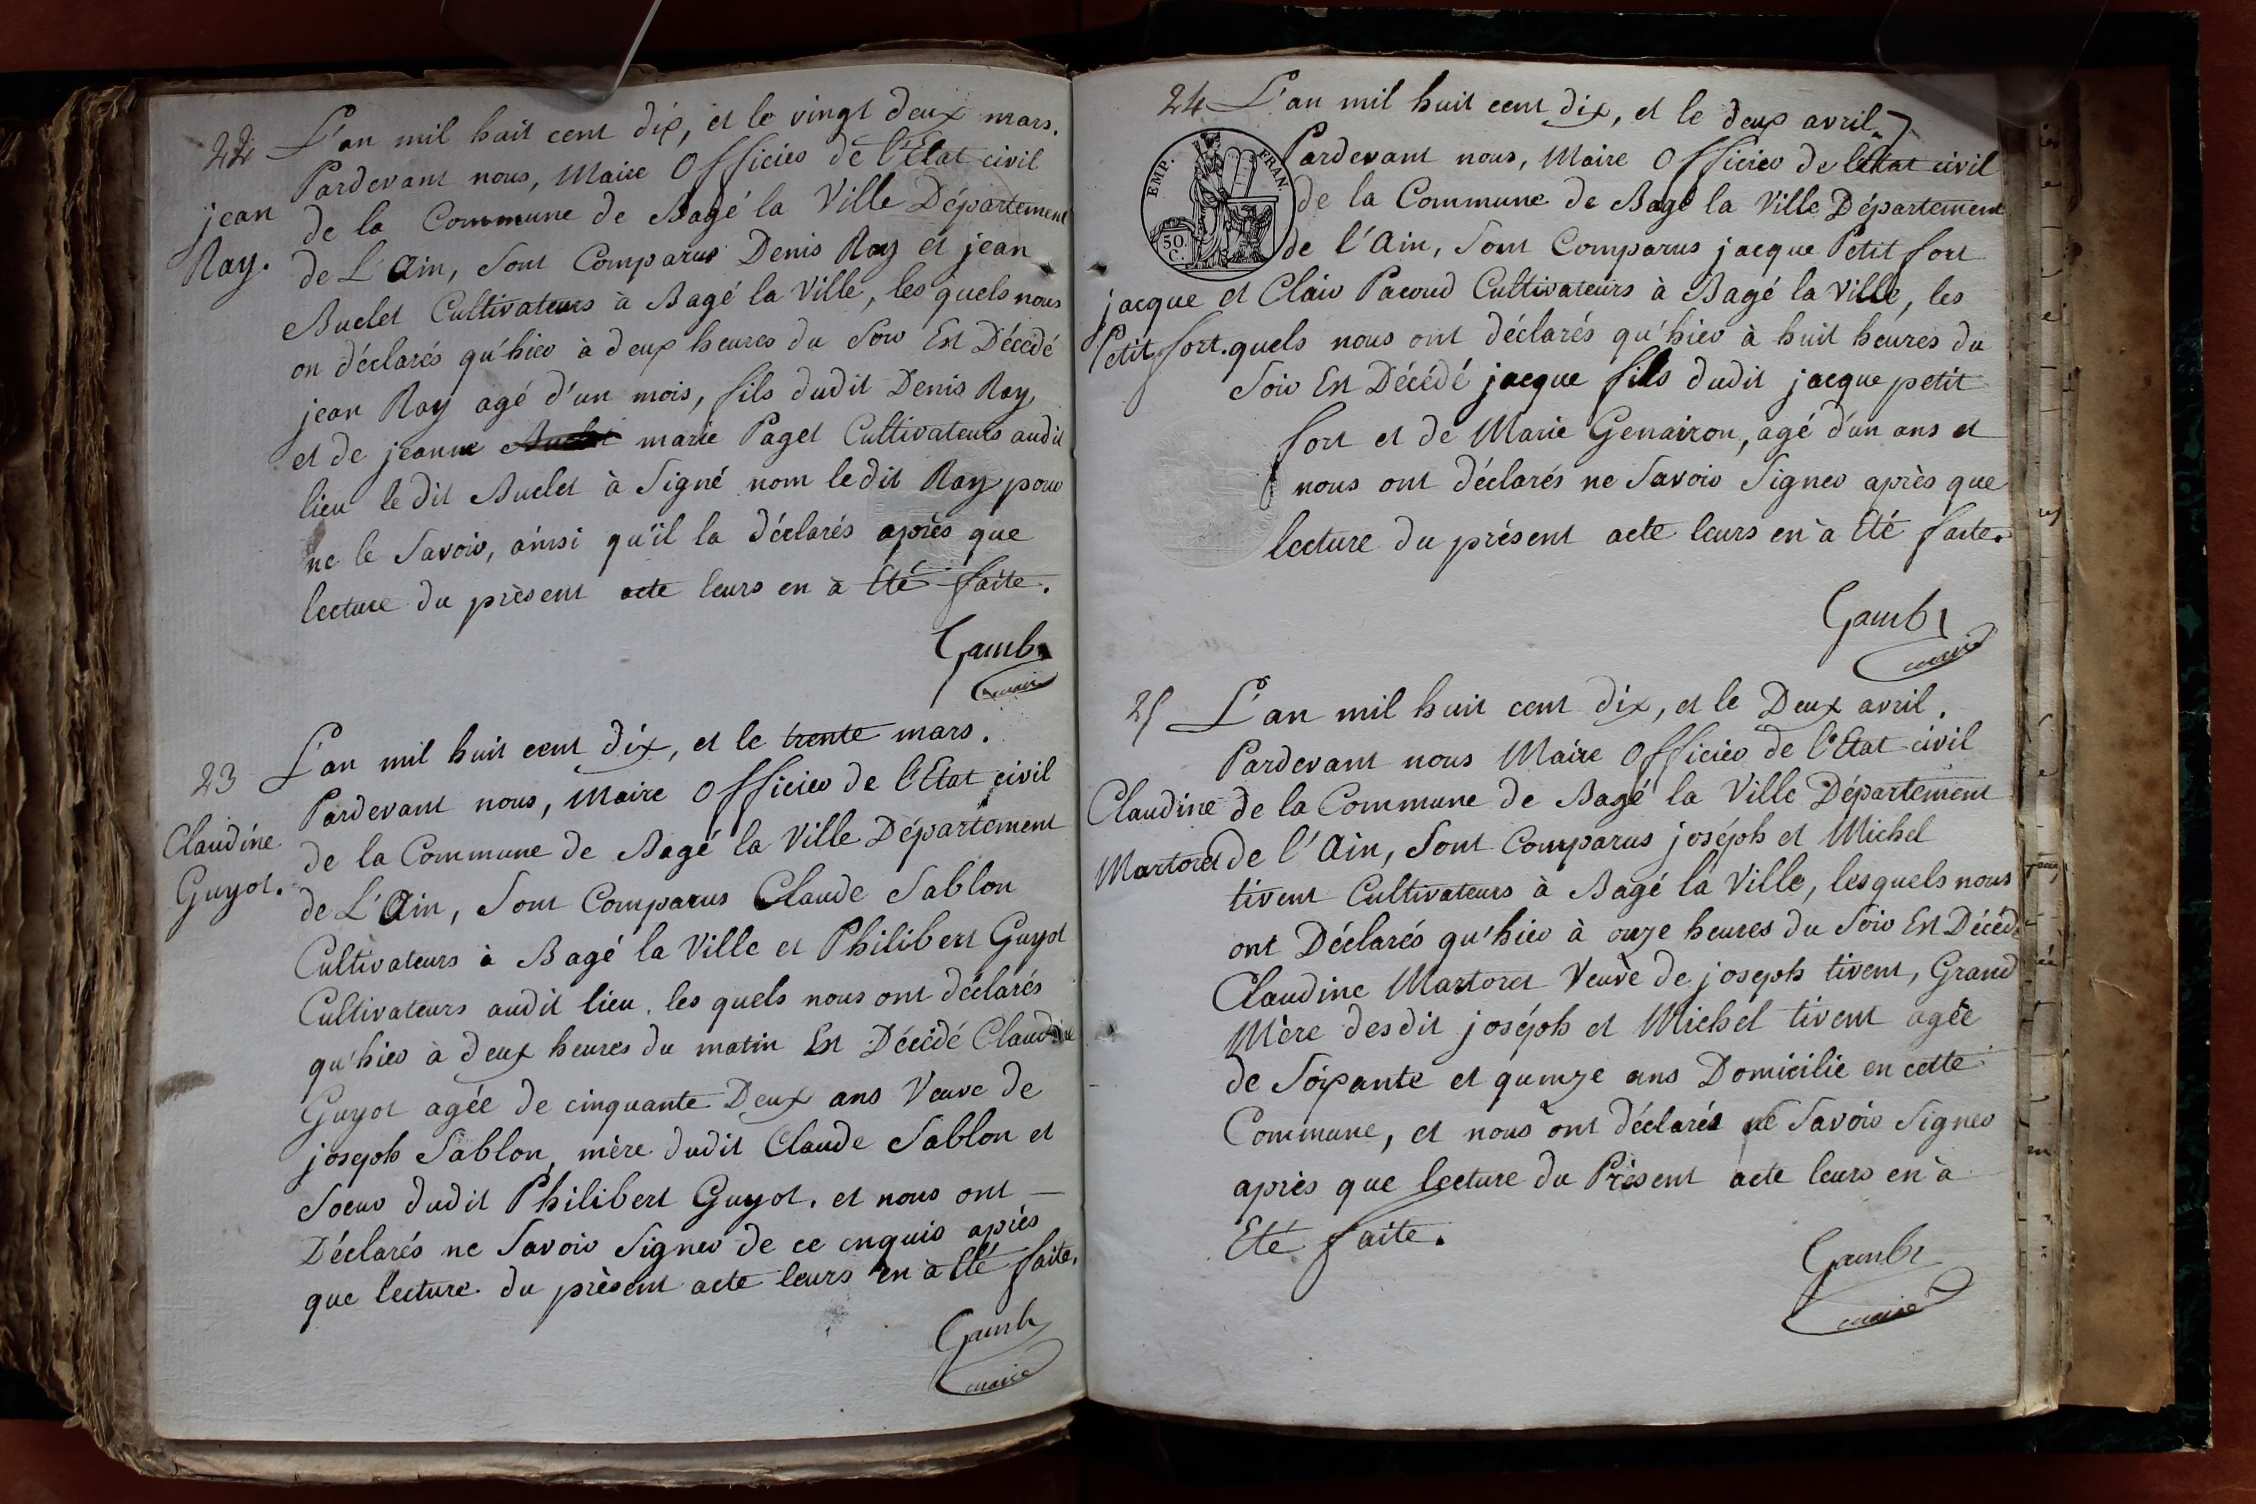 22
L'an mil huit cent dix, et le vingt deux mars.
Pardevant nous, Maire Officier de l'Etat civil
jean
de la Commune de Bagé la Ville Département
Ray.
de L'Ain, Sont Comparus Denis Ray et jean
Buclet Cultivateurs à Bagé la Ville, les quels nous
on déclarés qu'hier à deux heures du Soir Est Décédé
jean Ray agé d'un mois, fils dudit Denis Ray
et de jeanne marie Paget Cultivateurs audit
lieu le dit Buclet à Signé nom ledit Ray pour
ne le Savoir, ainsi qu'il la déclarés après que
lecture du présent acte leurs en à Eté faite.
Gamb
maire
23
L'an mil huit cent dix, et le trente mars.
Pardevant nous, Maire Officier de l'Etat civil
Claudine
de la Commune de Bagé la Ville Département
Guyot.
de L'Ain, Sont Comparus Claude Sablon
Cultivateurs à Bagé la Ville et Philibert Guyot
Cultivateurs audit lieu. les quels nous ont déclarés
qu'hier à deux heures du matin Est Décédé Claudine
Guyot agée de cinquante Deux ans Veuve de
joseph Sablon, mère dudit Claude Sablon et
Soeur dudit Philibert Guyot. et nous ont
Déclarés ne Savoir Signer de ce enquis après
que lecture du présent acte leurs en à Eté faite.
Gamb
maire
24
L'an mil huit cent dix, et le deux avril.
Pardevant nous, Maire Officier de l'Etat civil
EMP. FRAN.
de la Commune de Bagé la Ville Département
50.
C.
de l'Ain, Sont Comparus jacque Petit fort
jacque
et Clair Pacoud Cultivateurs à Bagé la Ville, les
Petit fort.
quels nous ont déclarés qu'hier à huit heures du
Soir Est Décédé jacque fils dudit jacque petit
fort et de Marie Genairon, agé d'un ans et
nous ont déclarés ne Savoir Signer après que
lecture du présent acte leurs en à Eté faite.
Gamb
maire
25
L'an mil huit cent dix, et le Deux avril.
Pardevant nous Maire Officier de l'Etat civil
Claudine
de la Commune de Bagé la Ville Département
Martoret
de l'Ain, Sont Comparus joséph et Michel
tivent Cultivateurs à Bagé la Ville, lesquels nous
ont Déclarés qu'hier à onze heures du Soir Est Décédé
Claudine Martoret Veuve de joseph tivent, Grand
Mère desdit joséph et Michel tivent agée
de Soixante et quinze ans Domicilié en cette
Commune, et nous ont déclarés ne Savoir Signer
après que lecture du Présent acte leurs en à
Eté faite.
Gamb
maire